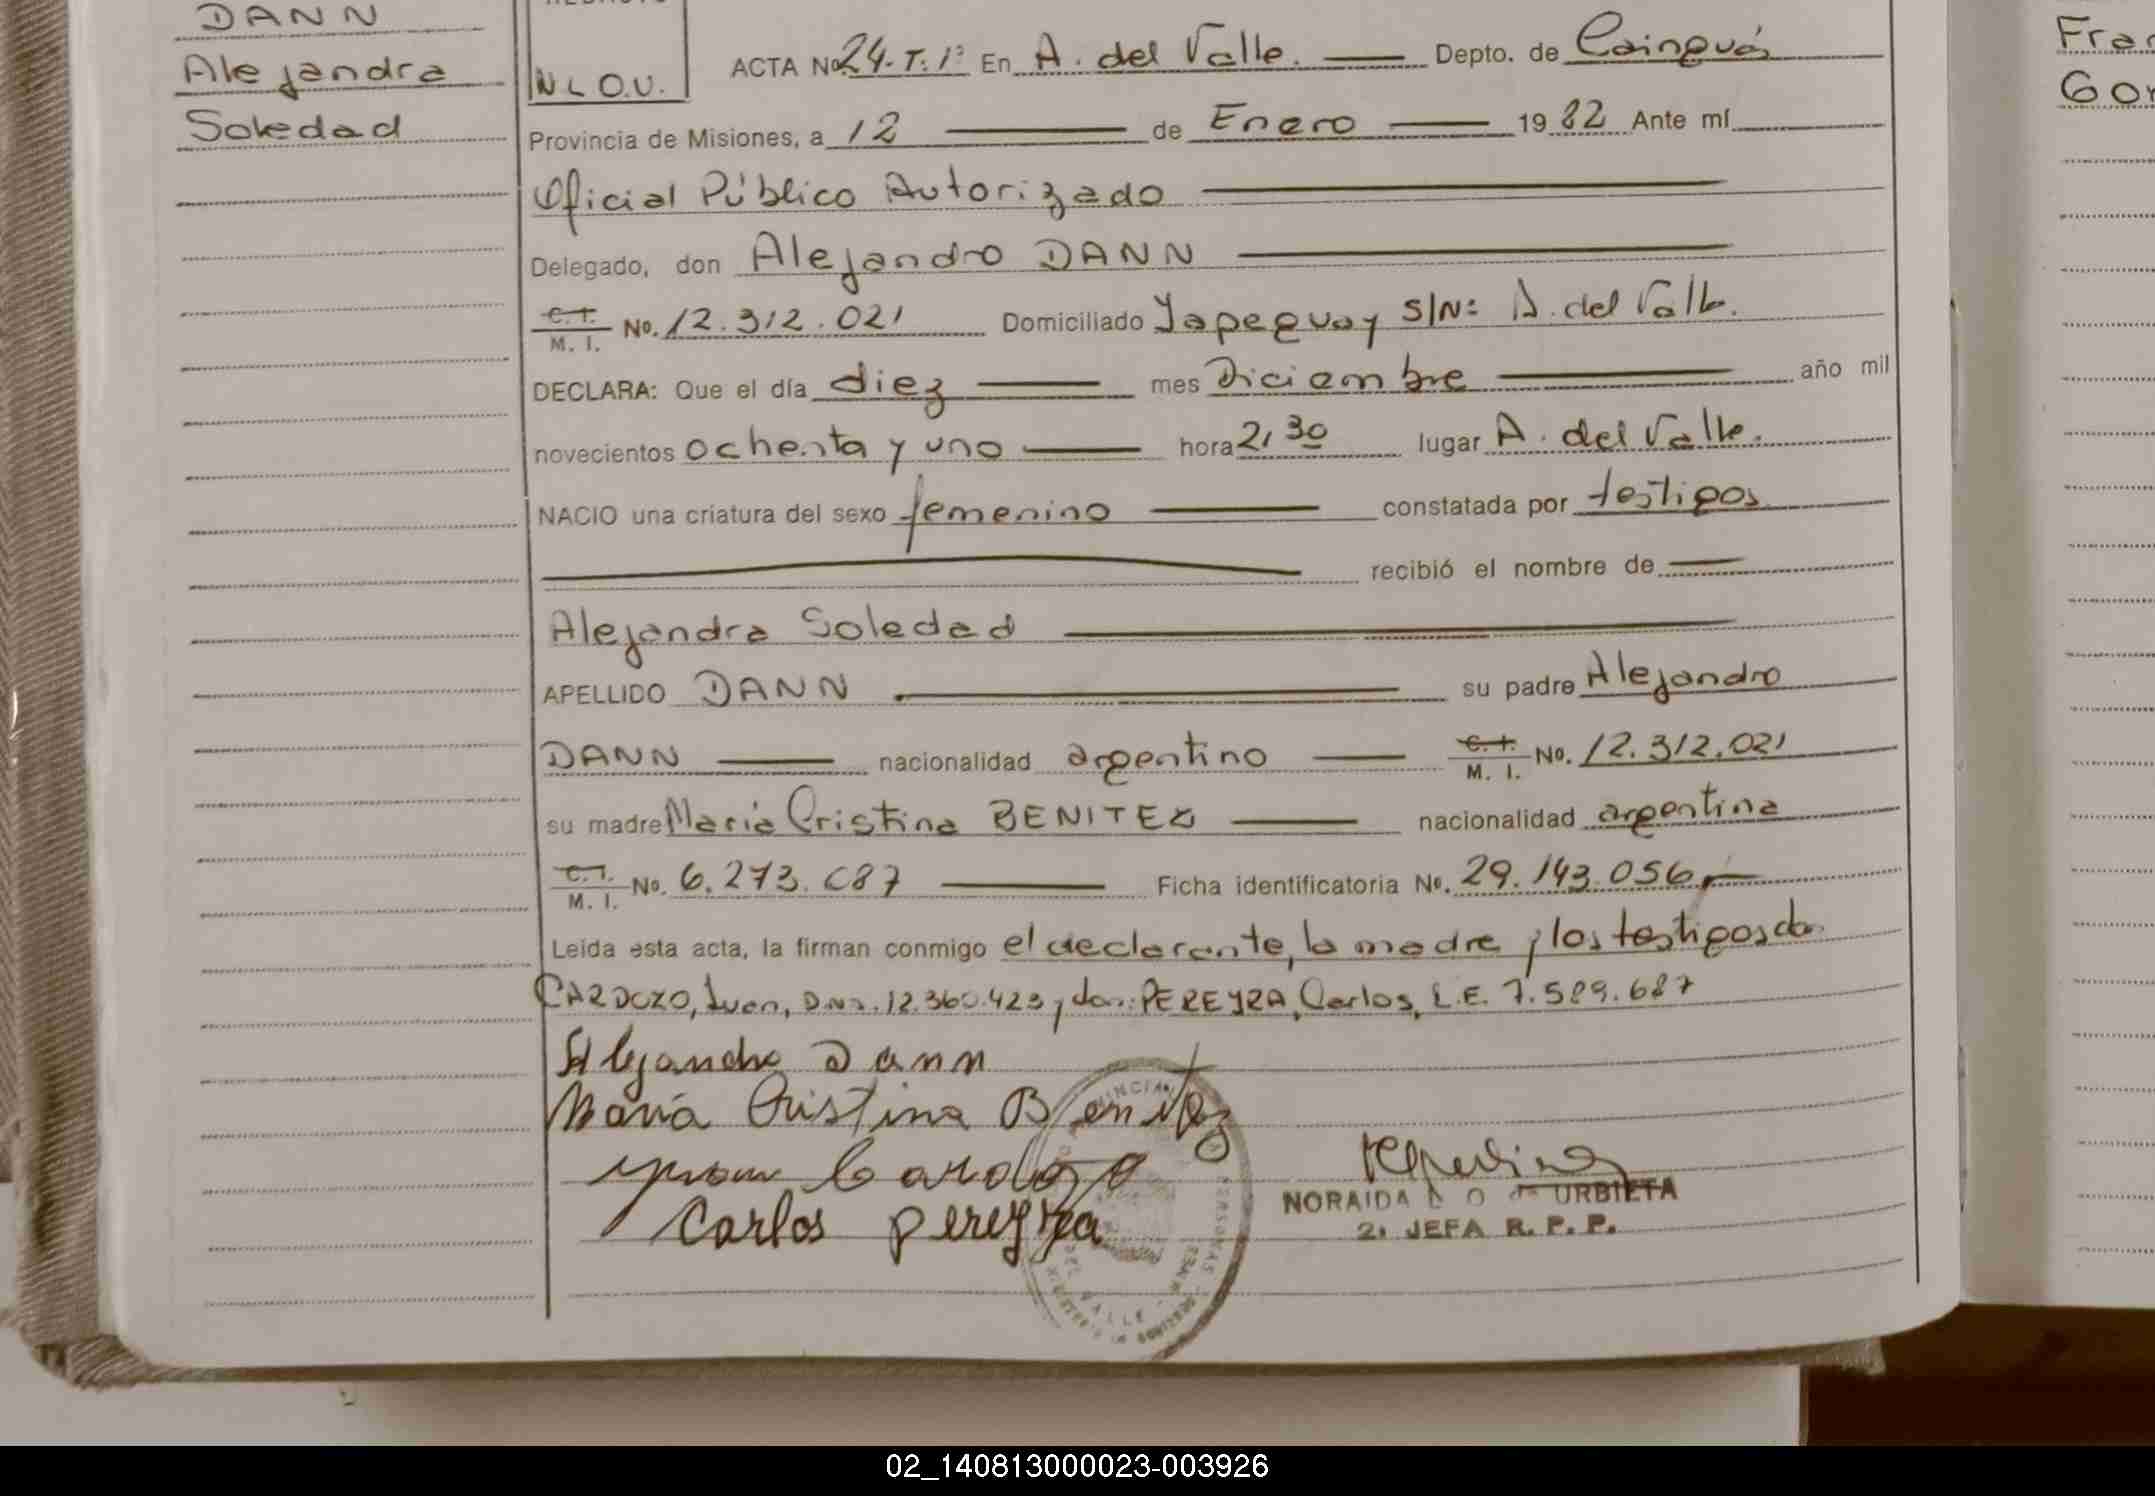 DANN
Alejandra
Soledad
N L O.U.
ACTA No. 24. T. 1º En A. del Valle. Depto. de Cainguás
Provincia de Misiones, a 12 de Enero 1982 Ante mí
Oficial Público Autorizado
Delegado, don Alejandro DANN
C. I. M. I. No. 12.312.021 Domiciliado S/N: A. del Valle.
DECLARA: Que el día diez mes Diciembre año mil
novecientos ochenta y uno hora 21,30 lugar A. del Valle.
NACIO una criatura del sexo femenino constatada por testigos
recibió el nombre de
Alejandra Soledad
APELLIDO DANN su padre Alejandro
DANN nacionalidad argentino C. I. M. I. No. 12.312.021
su madre María Cristina BENITEZ nacionalidad argentina
C. I. M. I. No. 6.273.087 Ficha identificatoria No. 29.143.056
Leída esta acta, la firman conmigo el declarante, la madre y los testigos don
CARDOZO, Juan, D.N.I. 12.360.423 y don: PEREYRA, Carlos, L.E. 7.589.687
Alejandro Dann
María Cristina Benitez
Juan Cardozo
Carlos pereyra
NORAIDA URBIETA
2: JEFA R. P. P.
DEL VALLE
Fra
Gon
02_140813000023-003926